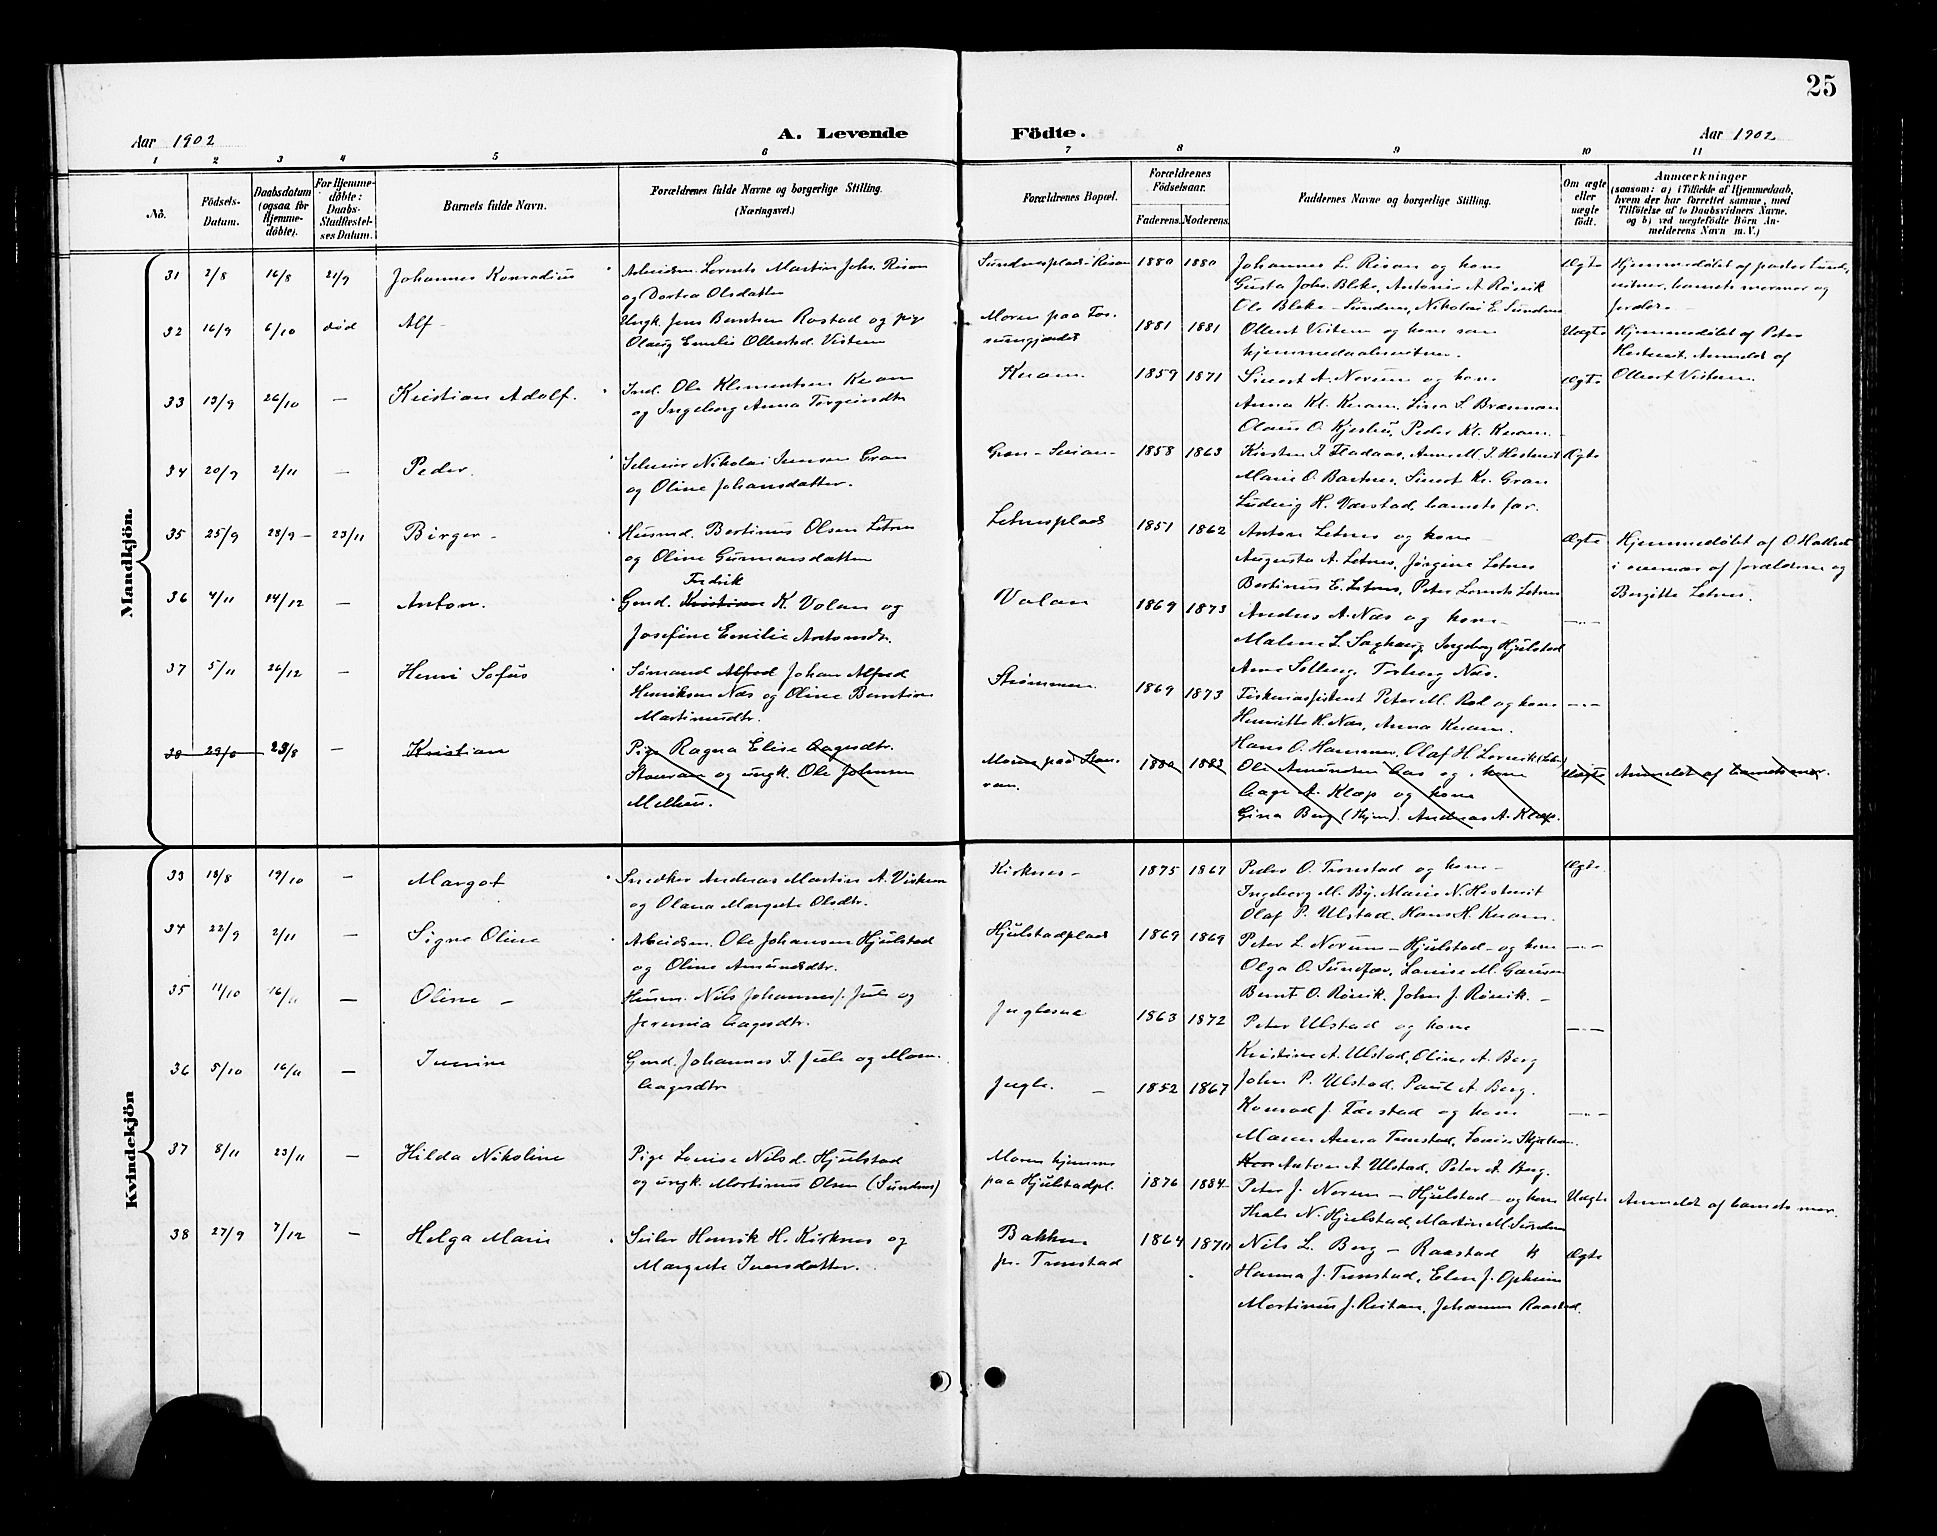 25
Aar 1902
A. Levende Födte.
Aar 1902
1 2 3 4 5 6 7 8 9 10 11
No.
Födsels-Datum.
Daabsdatum (ogsaa for Hjemmedöbte).
For Hjemmedöbte: Daabs-Stadfæstelses Datum.
Barnets fulde Navn.
Forældrenes fulde Navne og borgerlige Stilling. (Næringsvei.)
Forældrenes Bopæl.
Forældrenes Födselsaar.
Faderens. Moderens.
Faddernes Navne og borgerlige Stilling.
Om ægte eller uægte födt.
Anmærkninger
(saasom: a) i Tilfælde af Hjemmedaab, hvem der har forrettet samme, med Tilföielse af to Daabsvidners Navne. og b) ved uægtefödte Börn Anmelderens Navn m. V.)
Mandkjön.
31 2/8 16/8 21/9 Johannes Konradius
Arbeidsm. Lorents Martin Johs. Risan
og Dortea Olsdatter
Sundnesplads-Risan 1880 1880
Johannes L. Risan og kone
Gusta Johs. Bleke, Antonie A. Røsvik
Ole Bleke - Sundnes, Nikolai E. Sundnes
Ægte
Hjemmedøbt af
vitner, barnets mormor og
forældre
32 16/9 6/10 død Alf
Ungk. Jens Berntsen Rostad og pige
Olaug Emelie Ollertsd. Vistven
Moren paa 1881 1881
Ollert Vistven og kone som
hjemmedaabsvitner.
Uægte
Hjemmedøbt af Peter
Hestveit. Anmeldt af
Ollert Vistven
33 13/9 26/10 — Kristian Adolf.
Ind. Ole Klementsen Kvam
og Ingeborg Anna Torgeirsdtr
Kvam. 1859 1871
Sivert A. Norum og kone
Anna Kl. Kvam, Lina S. Brænnan
Olaus O. Kjeshu, Peder Kl. Kvam.
Ægte
34 20/9 2/11 — Peder.
Selveier Nikolai Iversen Gran
og Oline Johansdatter.
Gran - 1858 1863
Kirsten I. Fladaas, Anne M. I. Hestveit
Marie O. Bartnes, Sivert Kr. Gran
Ludvig H. Værstad, barnets far.
Ægte
35 25/9 28/9 — 23/11 Birger
Husmd. Bertinus Olsen Letnes
og Oline Gunnarsdatter
Letnesplads 1851 1862
Anton Letnes og kone
Augusta A. Letnes, Jørgine Letnes
Bertinus E. Letnes, Peter Lorents Letnes
Ægte
Hjemmedøbt af O. Halset
i nærvær af forældrene og
Bergitte Letnes.
36 4/11 14/12 — Anton.
Fredrik
Gmd. Kristian K. Volan og
Josefine Emilie Antonsdtr.
Volan 1869 1873
Anders A. Næs og kone
Malene L. Saghaug, Ingeborg Hjulstad
Arne Solberg, Torberg Næs.
— " —
37 5/11 26/12 — Henri Sofus
Sømand Alfred Johan Alfred
Henriksen Næs og Oline Berntine
Martinusdtr.
Strømmen 1869 1873
Fiskeriassistent Peter M. Rol og kone
Henriette H. Næs, Anna Kvam.
Hans O. Hammer, Olaf H.
— " —
38 29/6 23/8 — Kristian
Pige Ragna Elise Aagesdtr.
Stavran og ungk. Ole Johnsen
Melhus.
Moren paa Stavran. 1880 1883
Ole Amundsen Aas og kone
Aage A. Klæp og kone
Gina Berg (Hjem). Andreas A. Klæp.
Uægte
Anmeldt af barnets mor.
Kvindekjön
33 18/8 19/10 — Margot
Snedker Andreas Martin A. Visknes
og Olava Margrete Olsdtr.
Kirknes 1875 1867
Peder O. Tronstad og kone
Ingeborg M. By, Marie N. Hestveit
Olaf P. Ulstad, Hans H. Kvam.
Ægte
34 22/9 2/11 — Signe Oline
Arbeidsm. Ole Johansen Hjulstad
og Oline Amundsdtr.
Hjulstadplads 1869 1869
Peter L. Norum - Hjulstad - og kone
Olga O. Sundfær, Louise M. Gausen
Bernt O. Røsvik. John J. Røsvik.
— " —
35 11/10 16/11 — Oline
Husm. Nils Johannes. Jule og
Jeremia Aagesdtr.
1863 1872
Peter Ulstad og kone
Kristine A. Ulstad, Oline A. Berg
John P. Ulstad. Paul A. Berg.
— " —
36 5/10 16/11 — Iverine
Gmd. Johannes I. Jule og Maren
Aagesdtr
Jugle. 1852 1867
Konrad J. Færstad og kone
Maren Anna Tronstad, Louise
Anton A. Ulstad, Peter A. Berg.
— " —
37 8/11 23/11 — Hilda Nikoline
Pige Louise Nilsd. Hjulstad
og ungk. Mortinus Olsen (Sundnes)
Moren hjemme
paa Hjulstadpl. 1876 1884
Peter J. Norum - Hjulstad - og kone
Thale N. Hjulstad, Martin M. Sundnes
Uægte
Anmeldt af barnets mor.
38 27/9 7/12 — Helga Marie
Seiler Henrik H. Kirknes og
Margrete Iversdatter.
Bakken
pr. Tronstad 1864 1870
Nils L. Berg - Raastad
Hanna J. Tronstad, Elen J. Opheim
Mortinus J. Reistan, Johannes Raastad.
Ægte